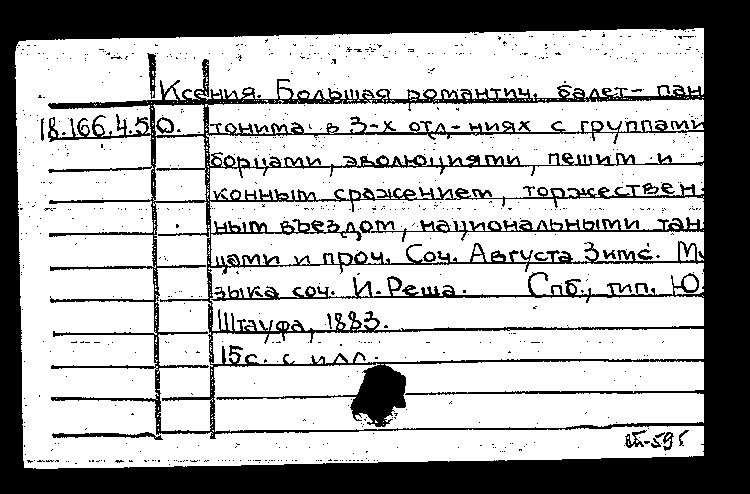 Ксения. Большая романтич. балет- пан
18.166.4.50. тонима в 3-х отд-ниях с группами
борцами, эволюциями, пешим и
конным сражением, торжествен-
ным въездом, национальными тан-
цами и проч. Соч. Августа Зимс. Му
зыка соч. И. Реша. Спб., тип. Ю.
Штауфа, 1883.
15с. с илл.